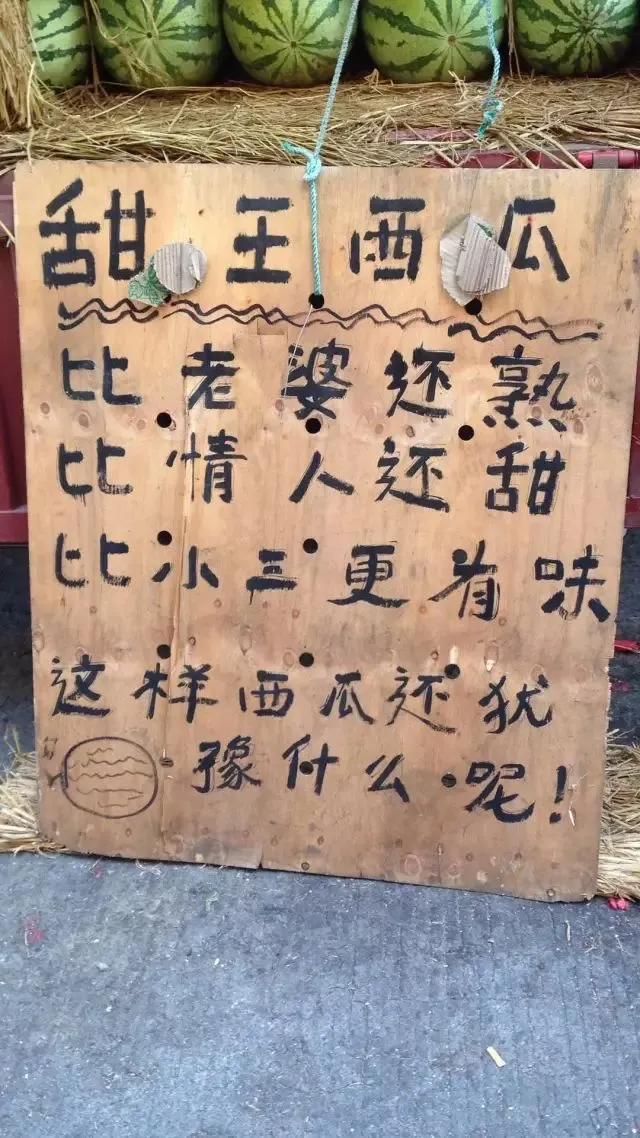 甜王西瓜
比老婆还熟
比情人还甜
比小三更有味
这样西瓜还犹
豫什么呢!